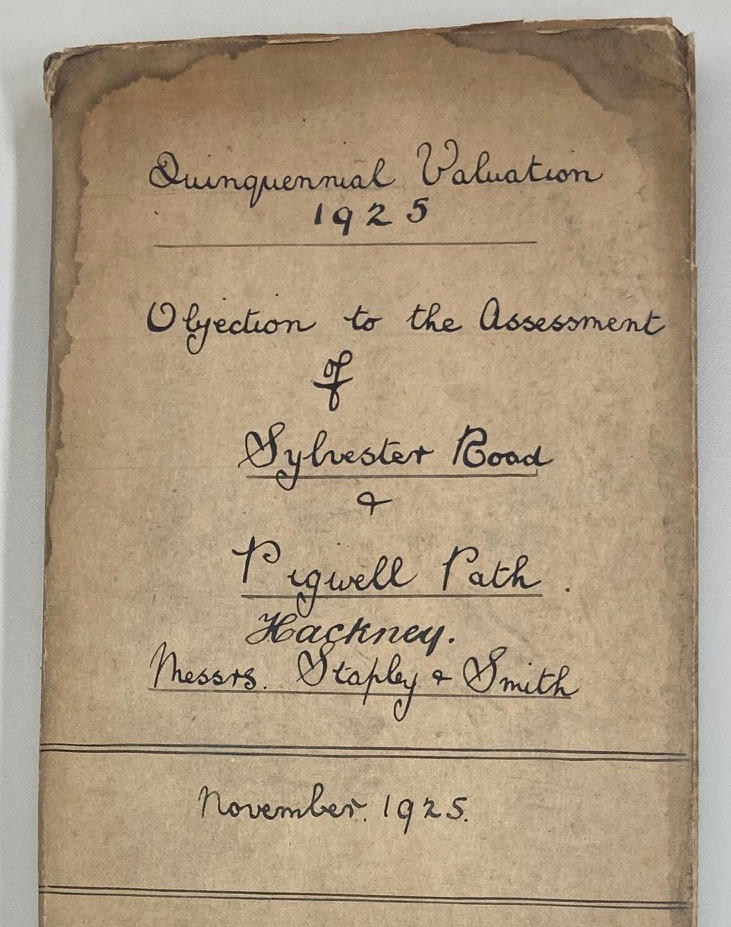 Quinquennial Valuation
1925
Objection to the Assessment
of
Sylvester Road
&
Pigwell Path.
Hackney.
Messrs. Stapley & Smith
November. 1925.